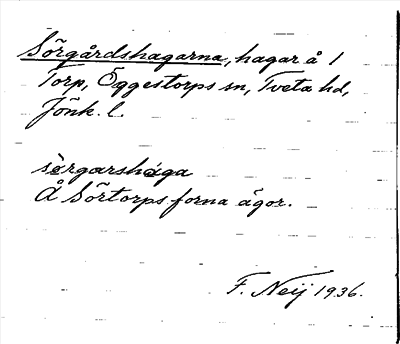 Sörgårdshagarna, hagar å 1
Torp, Öggestorps sn, Tveta hd,
Jönk. l.
sèrgarshága
Å Sörtorps forna ägor.
F. Neij 1936.